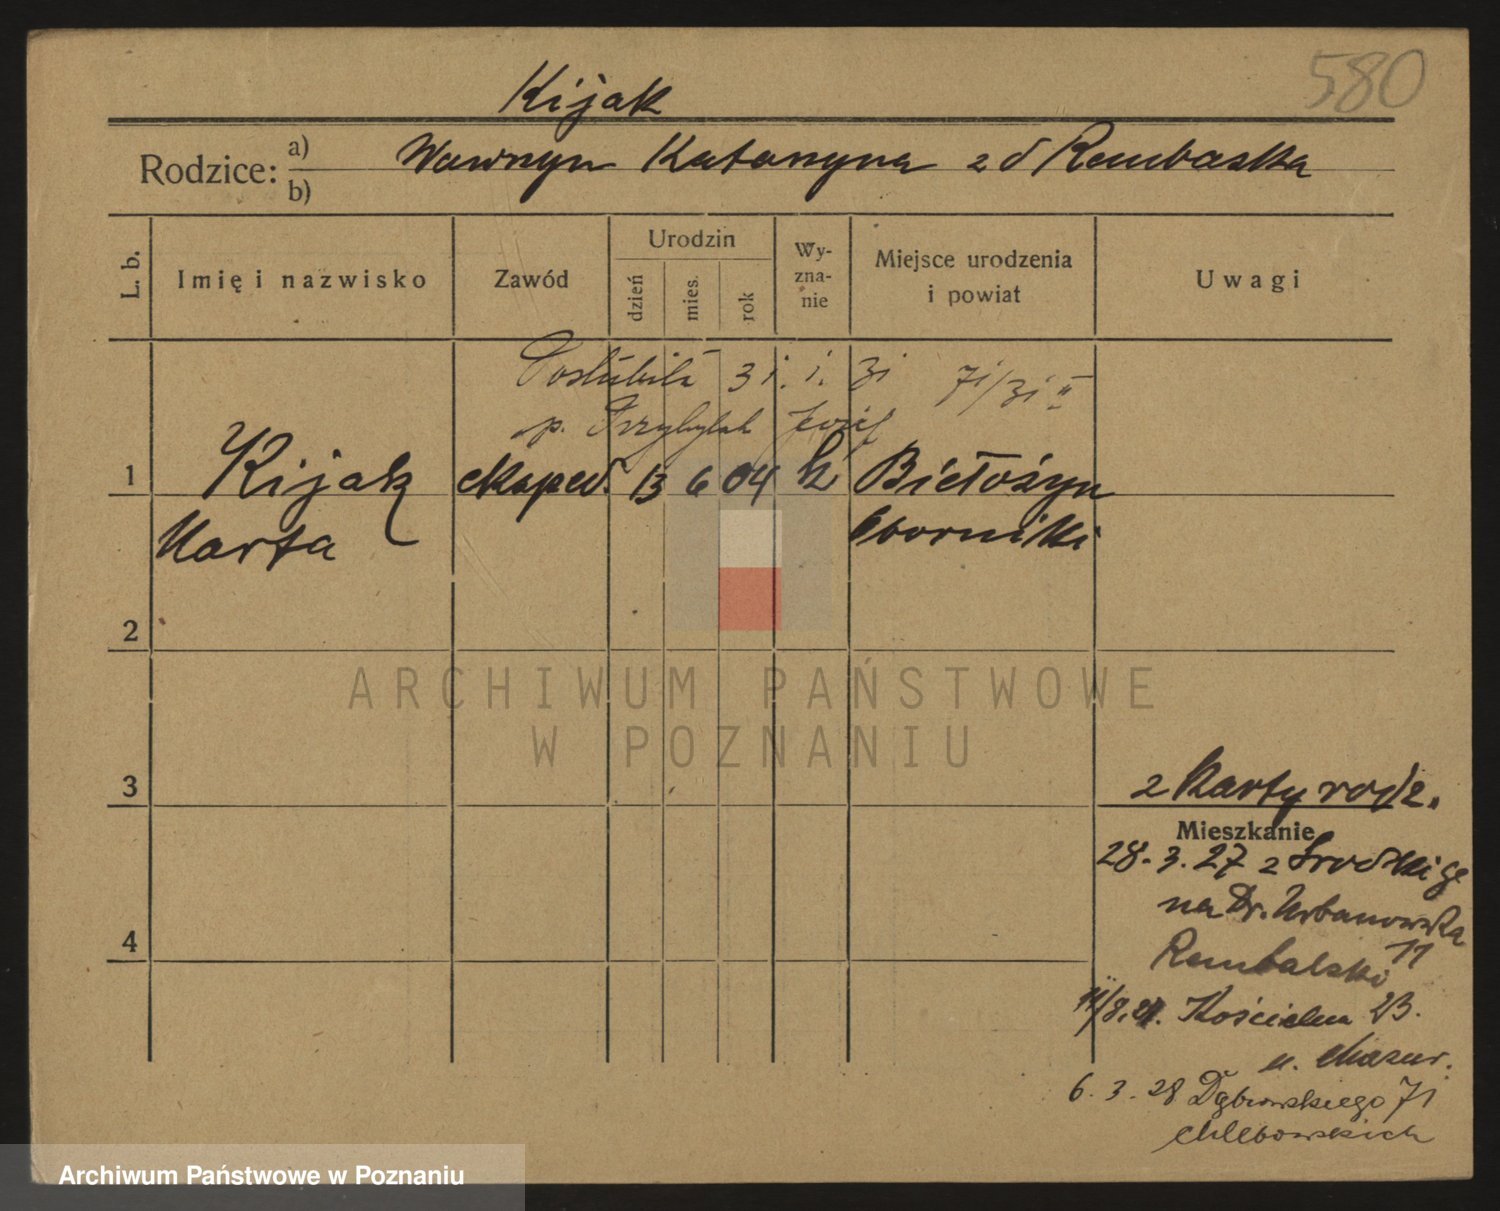 580
Kijak
Rodzice: a) b) Wawrzyn Katarzyna z d Rembalska
L. b.
Imię i nazwisko
Zawód
Urodzin
dzień
mies.
rok
Wy-
zna-
nie
Miejsce urodzenia
i powiat
Uwagi
Poślubiła 31. 1. 31 71/31 II
p. Przybylak Józef
1 Kijak eksped. 13 6 04 k Białężyn
Marta Oborniki
2
3
4
z karty rodz.
Mieszkanie
28. 3. 27 z Śródki
na Dr. Urbanowska
11
Rembalski
Kościelna 23.
u. Mazur.
6. 3. 28 Dąbrowskiego 71
Chlebowskich
ARCHIWUM PAŃSTWOWE
W POZNANIU
Archiwum Państwowe w Poznaniu